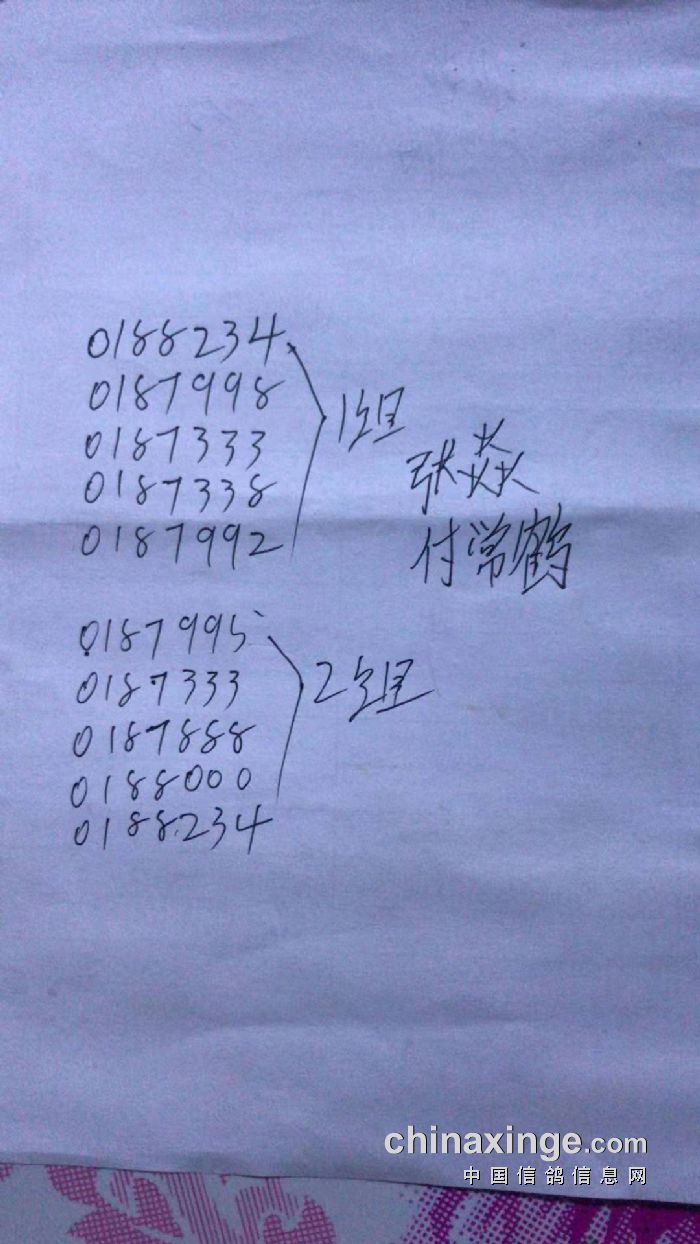 0188234
0187998
0187333
0187338
0187992
1组
张焱
付常鹤
0187995
0187333
0187888
0188000
0188234
2组
chinaxinge.com
中国信鸽信息网